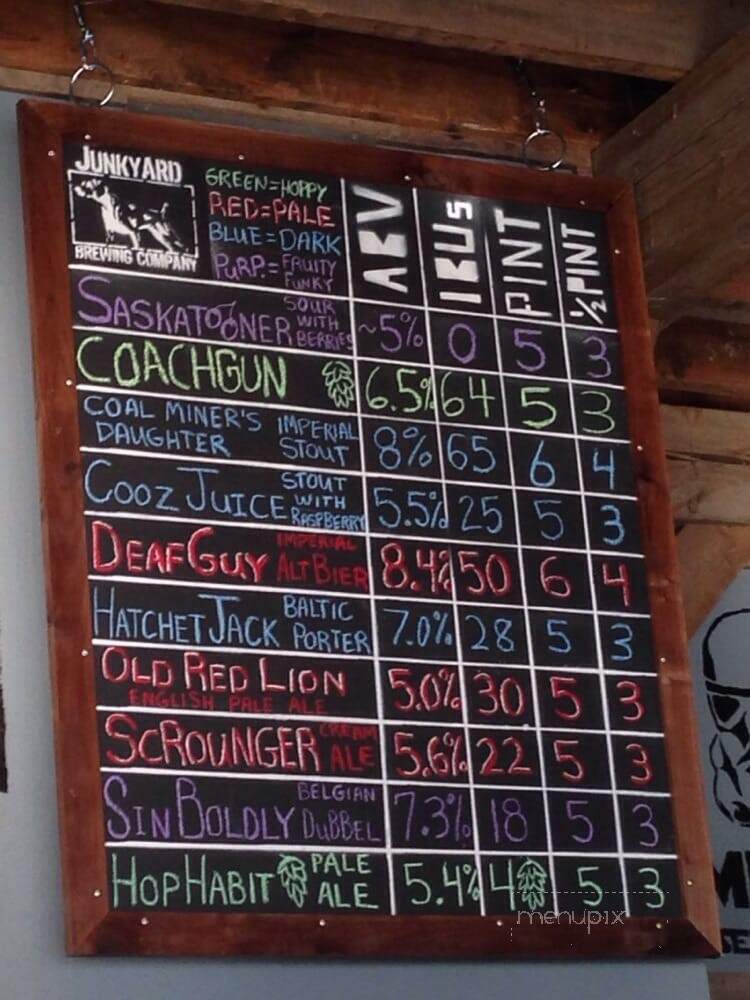 JUNKYARD
BREWING COMPANY
GREEN=HOPPY
RED=PALE
BLUE=DARK
PURP.=FRUITY
FUNKY
ABV IBUs PINT ½ PINT
SASKATOONER SOUR WITH BERRIES ~5% 0 5 3
COACHGUN 6.5% 64 5 3
COAL MINER'S DAUGHTER IMPERIAL STOUT 8% 65 6 4
COOZ JUICE STOUT WITH RASPBERRY 5.5% 25 5 3
DEAF GUY IMPERIAL ALT BIER 8.4% 50 6 4
HATCHET JACK BALTIC PORTER 7.0% 28 5 3
OLD RED LION ENGLISH PALE ALE 5.0% 30 5 3
SCROUNGER CREAM ALE 5.6% 22 5 3
SIN BOLDLY BELGIAN DUBBEL 7.3% 18 5 3
HOP HABIT PALE ALE 5.4% 4 5 3
menupix